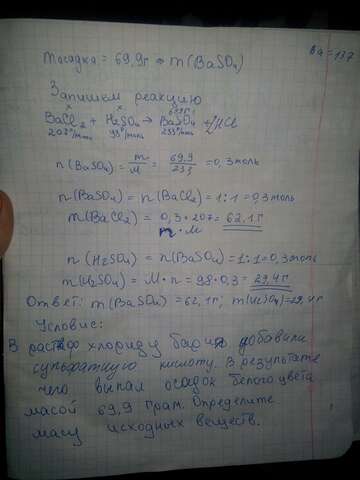 m осадка = 69,9г ⇒ m(BaSO₄)
Ba = 137
Запишем реакцию
x x 69,9г
BaCl₂ + H₂SO₄ → BaSO₄ + 2HCl
207г/моль 98г/моль 233г/моль
n(BaSO₄) = m/M = 69,9/233 = 0,3 моль
n(BaSO₄) = n(BaCl₂) = 1:1 = 0,3 моль
m(BaCl₂) = 0,3 · 207 = 62,1 г
n · M
n(H₂SO₄) = n(BaSO₄) = 1:1 = 0,3 моль
m(H₂SO₄) = M · n = 98 · 0,3 = 29,4 г
Ответ: m(BaSO₄) = 62,1г; m(H₂SO₄) = 29,4г
Условие:
В раствор хлориду бария добавили
сульфатную кислоту. В результате
чего, выпал осадок белого цвета
масой 69,9 грам. Определите
масу исходных веществ.